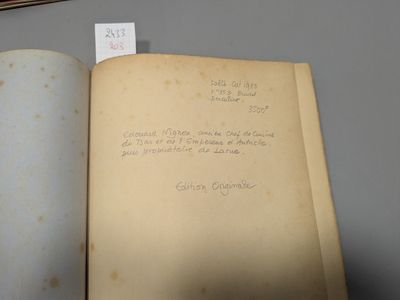 2433
203
Cat 1983
3500F
Edouard Nignon, ancien chef de cuisine
du Tsar et de l'Empereur d'Autriche
puis propriétaire de Larue.
Edition Originale